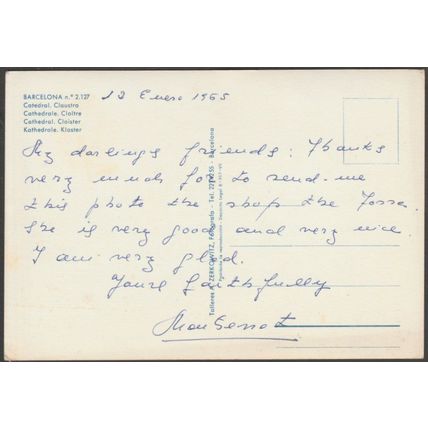 BARCELONA n.º 2.127
Catedral. Claustro
Cathedrale. Cloître
Cathedral. Cloister
Kathedrale. Kloster
12 Enero 1965
My darlings friends: Thanks
very much for to send-me
this photo the shop the Tossa
She is very good and very nice.
I am very glad.
Yours faithfully
Montserrat
Talleres A. ZERKOWITZ, Fotógrafo - Tel. - Barcelona